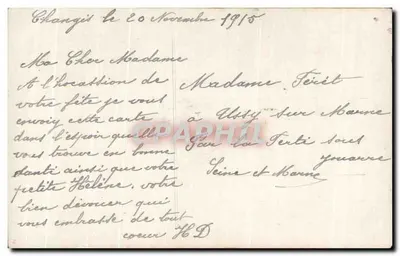 Changis le 20 Novembre 1915
Ma Cher Madame
A l'hocassion de
votre fête je vous
envoiy cette carte
dans l'espoir quelle
vous trouve en bonne
santé ainsi que votre
petite Hélène, votre
bien dévouer qui
vous embrasse de tout
coeur HD
Madame Féret
à Ussy sur Marne
Par la Ferté sous
Jouarre
Seine et Marne